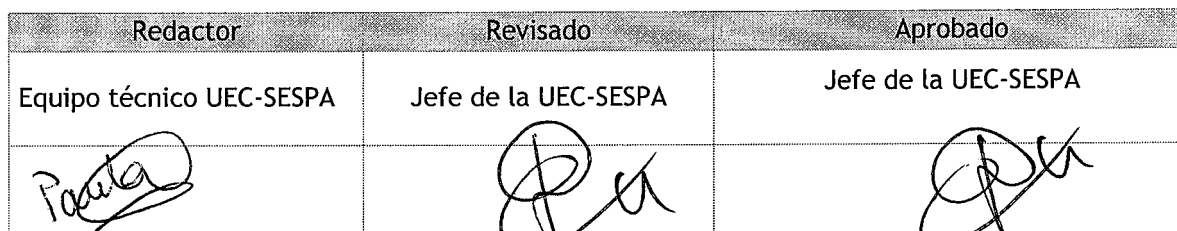 Redactor Revisado Aprobado
Equipo técnico UEC-SESPA Jefe de la UEC-SESPA Jefe de la UEC-SESPA